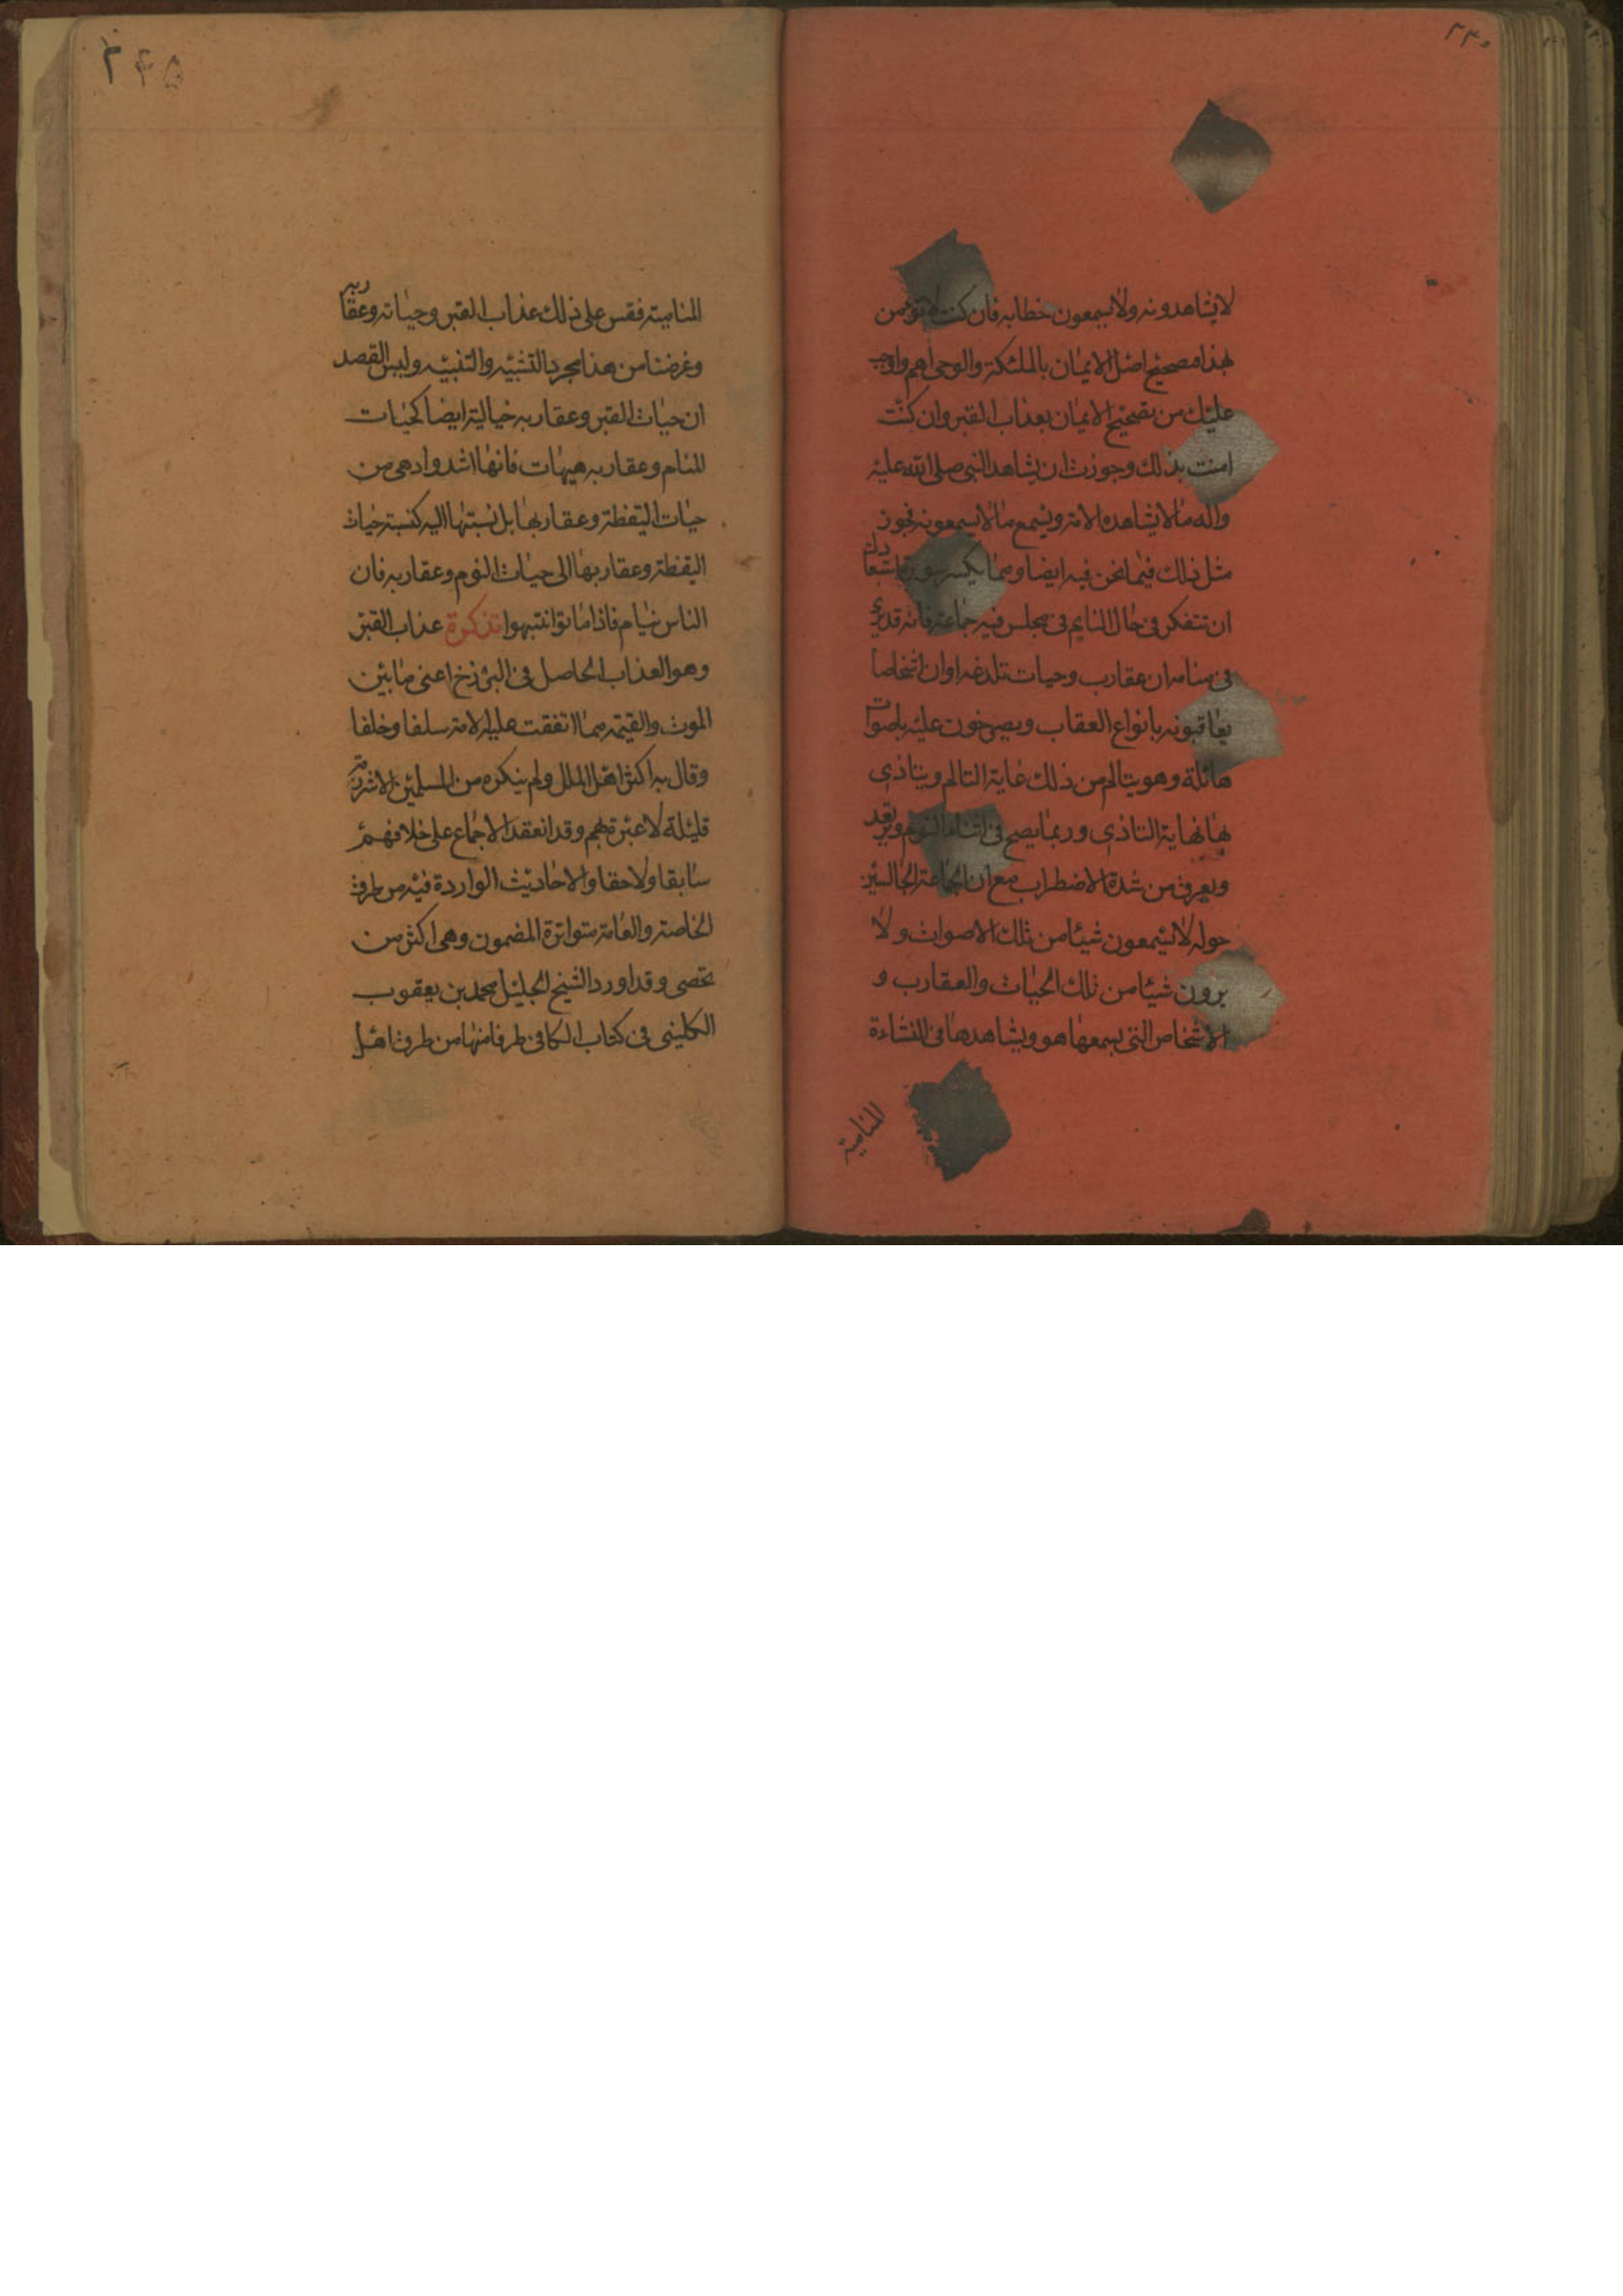 لايشاهدونه ولايسمعون خطابه فان كنت لاتؤمن
بهذا فتصحيح اصل الايمان بالملئكة والوحى اهم واوجب
عليك من تصحيح الايمان بعذاب القبر وان كنت
امنت بذلك وجوزت ان يشاهد النبى صلى الله عليه
واله مالايشاهده الامة ويسمع مالايسمعونه فجوز
مثل ذلك فيما نحن فيه ايضا ومما يكسر سورة استبعادك
ان تتفكر فى حال النايم فى مجلس فيه جماعة فانه قد يرى
فى منامه ان عقارب وحيات تلدغه او ان اشخاصا
يعاقبونه بانواع العقاب ويصيحون عليه باصوات
هائلة وهو يتالم من ذلك غاية التالم ويتاذى
بها نهاية التاذى وربما يصيح فى اثناء النوم ويرتعد
ويعرق من شدة الاضطراب مع ان الجماعة الجالسين
حوله لايسمعون شيئا من تلك الاصوات ولا
يرون شيئا من تلك الحيات والعقارب و
الاشخاص التى يسمعها هو ويشاهدها فى النشاءة
المنامية
المنامية فقس على ذلك عذاب القبر وحياته وعقاربه
وغرضنا من هذا مجرد التشبيه والتنبيه وليس القصد
ان حيات القبر وعقاربه خيالية ايضا كحيات
المنام وعقاربه هيهات فانها اشد وادهى من
حيات اليقظة وعقاربها بل نسبتها اليه كنسبة حيات
اليقظة وعقاربها الى حيات النوم وعقاربه فان
الناس نيام فاذا ماتوا انتبهوا تذكرة عذاب القبر
وهو العذاب الحاصل فى البرزخ اعنى مابين
الموت والقيمة مما اتفقت عليه الامة سلفا وخلفا
وقال به اكثر اهل الملل ولم ينكره من المسلمين الا شرذمة
قليلة لا عبرة بهم وقد انعقد الاجماع على خلافهم
سابقا ولاحقا والاحاديث الواردة فيه من طرق
الخاصة والعامة متواترة المضمون وهى اكثر من
تحصى وقد اورد الشيخ الجليل محمد بن يعقوب
الكلينى فى كتاب الكافى طرفا منها من طرق اهل